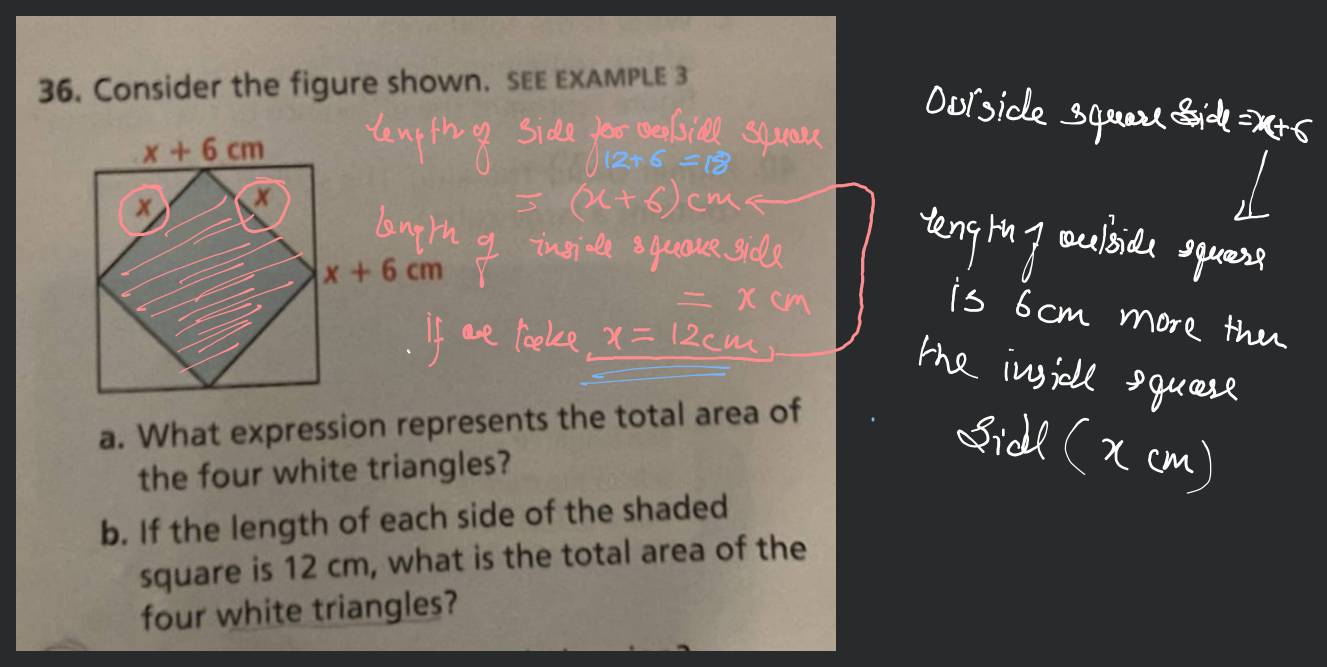 36. Consider the figure shown. SEE EXAMPLE 3
x + 6 cm
x
x
x + 6 cm
length of side for outside square
12+6 = 18
= (x+6) cm
length of inside square side
= x cm
If we take x = 12cm
a. What expression represents the total area of
the four white triangles?
b. If the length of each side of the shaded
square is 12 cm, what is the total area of the
four white triangles?
Outside square side = x+6
length of outside square
is 6cm more then
the inside square
Side (x cm)